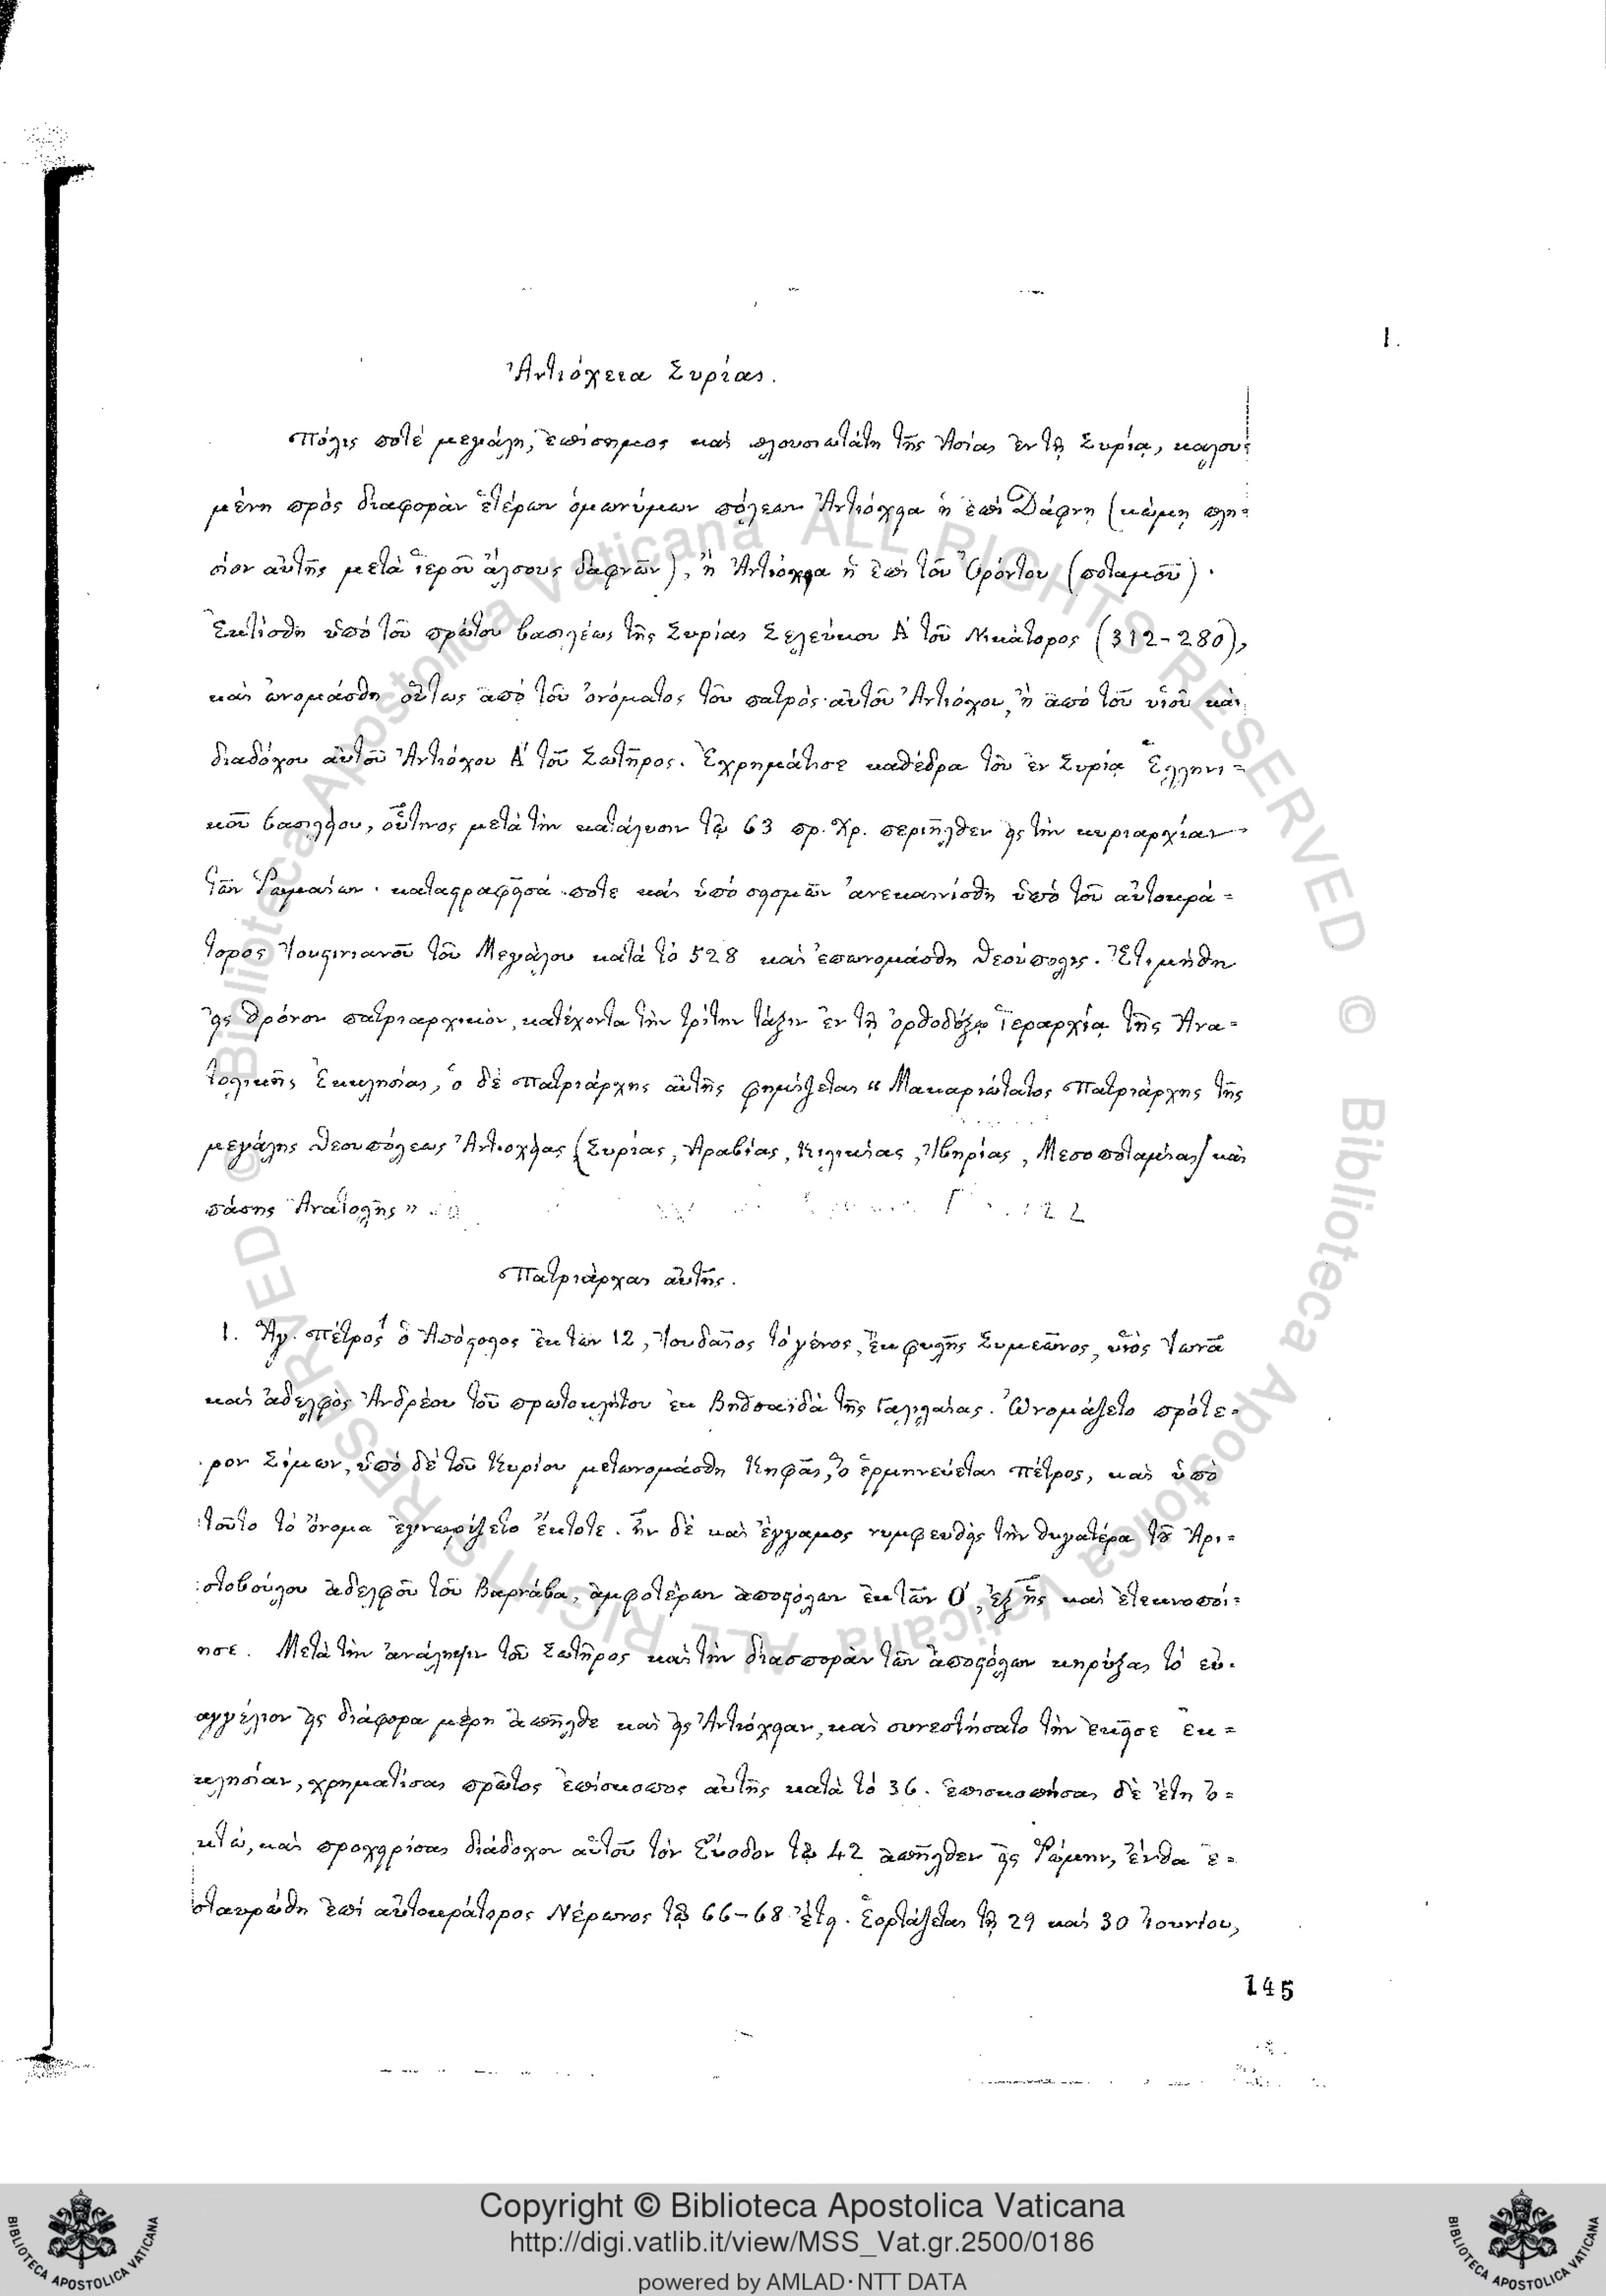 1.
Ἀντιόχεια Συρίας.
Πόλις ποτὲ μεγάλη, ἐπίσημος καὶ πλουσιωτάτη τῆς Ἀσίας ἐν τῇ Συρίᾳ, καλου-
μένη πρὸς διαφορὰν ἑτέρων ὁμωνύμων πόλεων Ἀντιόχεια ἡ ἐπὶ Δάφνῃ (κώμῃ πλη-
σίον αὐτῆς μετὰ ἱεροῦ ἄλσους δαφνῶν), ἢ Ἀντιόχεια ἡ ἐπὶ τοῦ Ὀρόντου (ποταμοῦ).
Ἐκτίσθη ὑπὸ τοῦ πρώτου βασιλέως τῆς Συρίας Σελεύκου Α΄ τοῦ Νικάτορος (312-280),
καὶ ὠνομάσθη οὕτως ἀπὸ τοῦ ὀνόματος τοῦ πατρὸς αὐτοῦ Ἀντιόχου, ἢ ἀπὸ τοῦ υἱοῦ καὶ
διαδόχου αὐτοῦ Ἀντιόχου Α΄ τοῦ Σωτῆρος. Ἐχρημάτισε καθέδρα τοῦ ἐν Συρίᾳ Ἑλληνι-
κοῦ βασιλείου, οὗτινος μετὰ τὴν κατάλυσιν τῷ 63 πρ. Χρ. περιῆλθεν εἰς τὴν κυριαρχίαν
τῶν Ῥωμαίων. καταστραφεῖσά ποτε καὶ ὑπὸ σεισμῶν ἀνεκαινίσθη ὑπὸ τοῦ αὐτοκρά-
τορος Ἰουστινιανοῦ τοῦ Μεγάλου κατὰ τὸ 528 καὶ ἐπωνομάσθη Θεούπολις. Ἐτιμήθη
εἰς θρόνον πατριαρχικὸν, κατέχοντα τὴν τρίτην τάξιν ἐν τῇ ὀρθοδόξῳ ἱεραρχίᾳ τῆς Ἀνα-
τολικῆς Ἐκκλησίας, ὁ δὲ Πατριάρχης αὐτῆς φημίζεται « Μακαριώτατος Πατριάρχης τῆς
μεγάλης Θεουπόλεως Ἀντιοχείας (Συρίας, Ἀραβίας, Κιλικίας, Ἰβηρίας, Μεσοποταμίας) καὶ
πάσης Ἀνατολῆς »
Πατριάρχαι αὐτῆς.
1. Ἅγ. Πέτρος ὁ Ἀπόστολος ἐκ τῶν 12, Ἰουδαῖος τὸ γένος, ἐκ φυλῆς Συμεῶνος, υἱὸς Ἰωνᾶ
καὶ ἀδελφὸς Ἀνδρέου τοῦ πρωτοκλήτου ἐκ Βηθσαϊδὰ τῆς Γαλιλαίας. Ὠνομάζετο πρότε-
ρον Σίμων, ὑπὸ δὲ τοῦ Κυρίου μετωνομάσθη Κηφᾶς, ὃ ἑρμηνεύεται Πέτρος, καὶ ὑπὸ
τοῦτο τὸ ὄνομα ἐγνωρίζετο ἔκτοτε. ἦν δὲ καὶ ἔγγαμος νυμφευθεὶς τὴν θυγατέρα τοῦ Ἀρι-
στοβούλου ἀδελφοῦ τοῦ Βαρνάβα, ἀμφοτέρων ἀποστόλων ἐκ τῶν Ο΄, ἐξ ἧς καὶ ἐτεκνοποί-
ησε. Μετὰ τὴν ἀνάληψιν τοῦ Σωτῆρος καὶ τὴν διασπορὰν τῶν ἀποστόλων κηρύξας τὸ εὐ-
αγγέλιον εἰς διάφορα μέρη ἀπῆλθε καὶ εἰς Ἀντιόχειαν, καὶ συνεστήσατο τὴν ἐκεῖσε ἐκ-
κλησίαν, χρηματίσας πρῶτος ἐπίσκοπος αὐτῆς κατὰ τὸ 36. ἐπισκοπήσας δὲ ἔτη ὀ-
κτὼ, καὶ προχειρίσας διάδοχον αὐτοῦ τὸν Εὔοδον τῷ 42 ἀπῆλθεν εἰς Ῥώμην, ἔνθα ἐ-
σταυρώθη ἐπὶ αὐτοκράτορος Νέρωνος τῷ 66-68 ἔτει. Ἑορτάζεται τῇ 29 καὶ 30 Ἰουνίου,
145
© Biblioteca Apostolica Vaticana ALL RIGHTS RESERVED © Biblioteca Apostolica Vaticana ALL RIGHTS RESERVED
Copyright © Biblioteca Apostolica Vaticana
http://digi.vatlib.it/view/MSS_Vat.gr.2500/0186
powered by AMLAD·NTT DATA
BIBLIOTECA APOSTOLICA VATICANA
BIBLIOTECA APOSTOLICA VATICANA